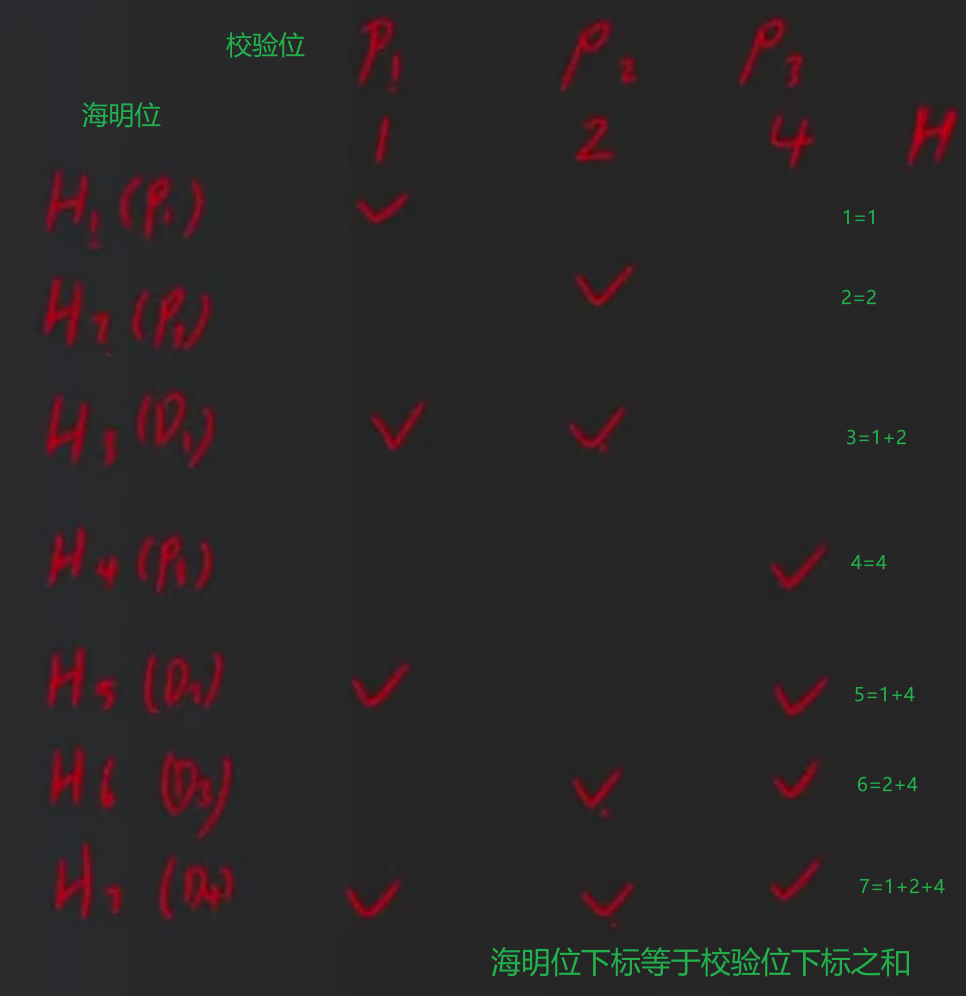 校验位 P1 P2 P3
海明位 1 2 4 H
H1 (P1) 1=1
H2 (P2) 2=2
H3 (D1) 3=1+2
H4 (P3) 4=4
H5 (D2) 5=1+4
H6 (D3) 6=2+4
H7 (D4) 7=1+2+4
海明位下标等于校验位下标之和